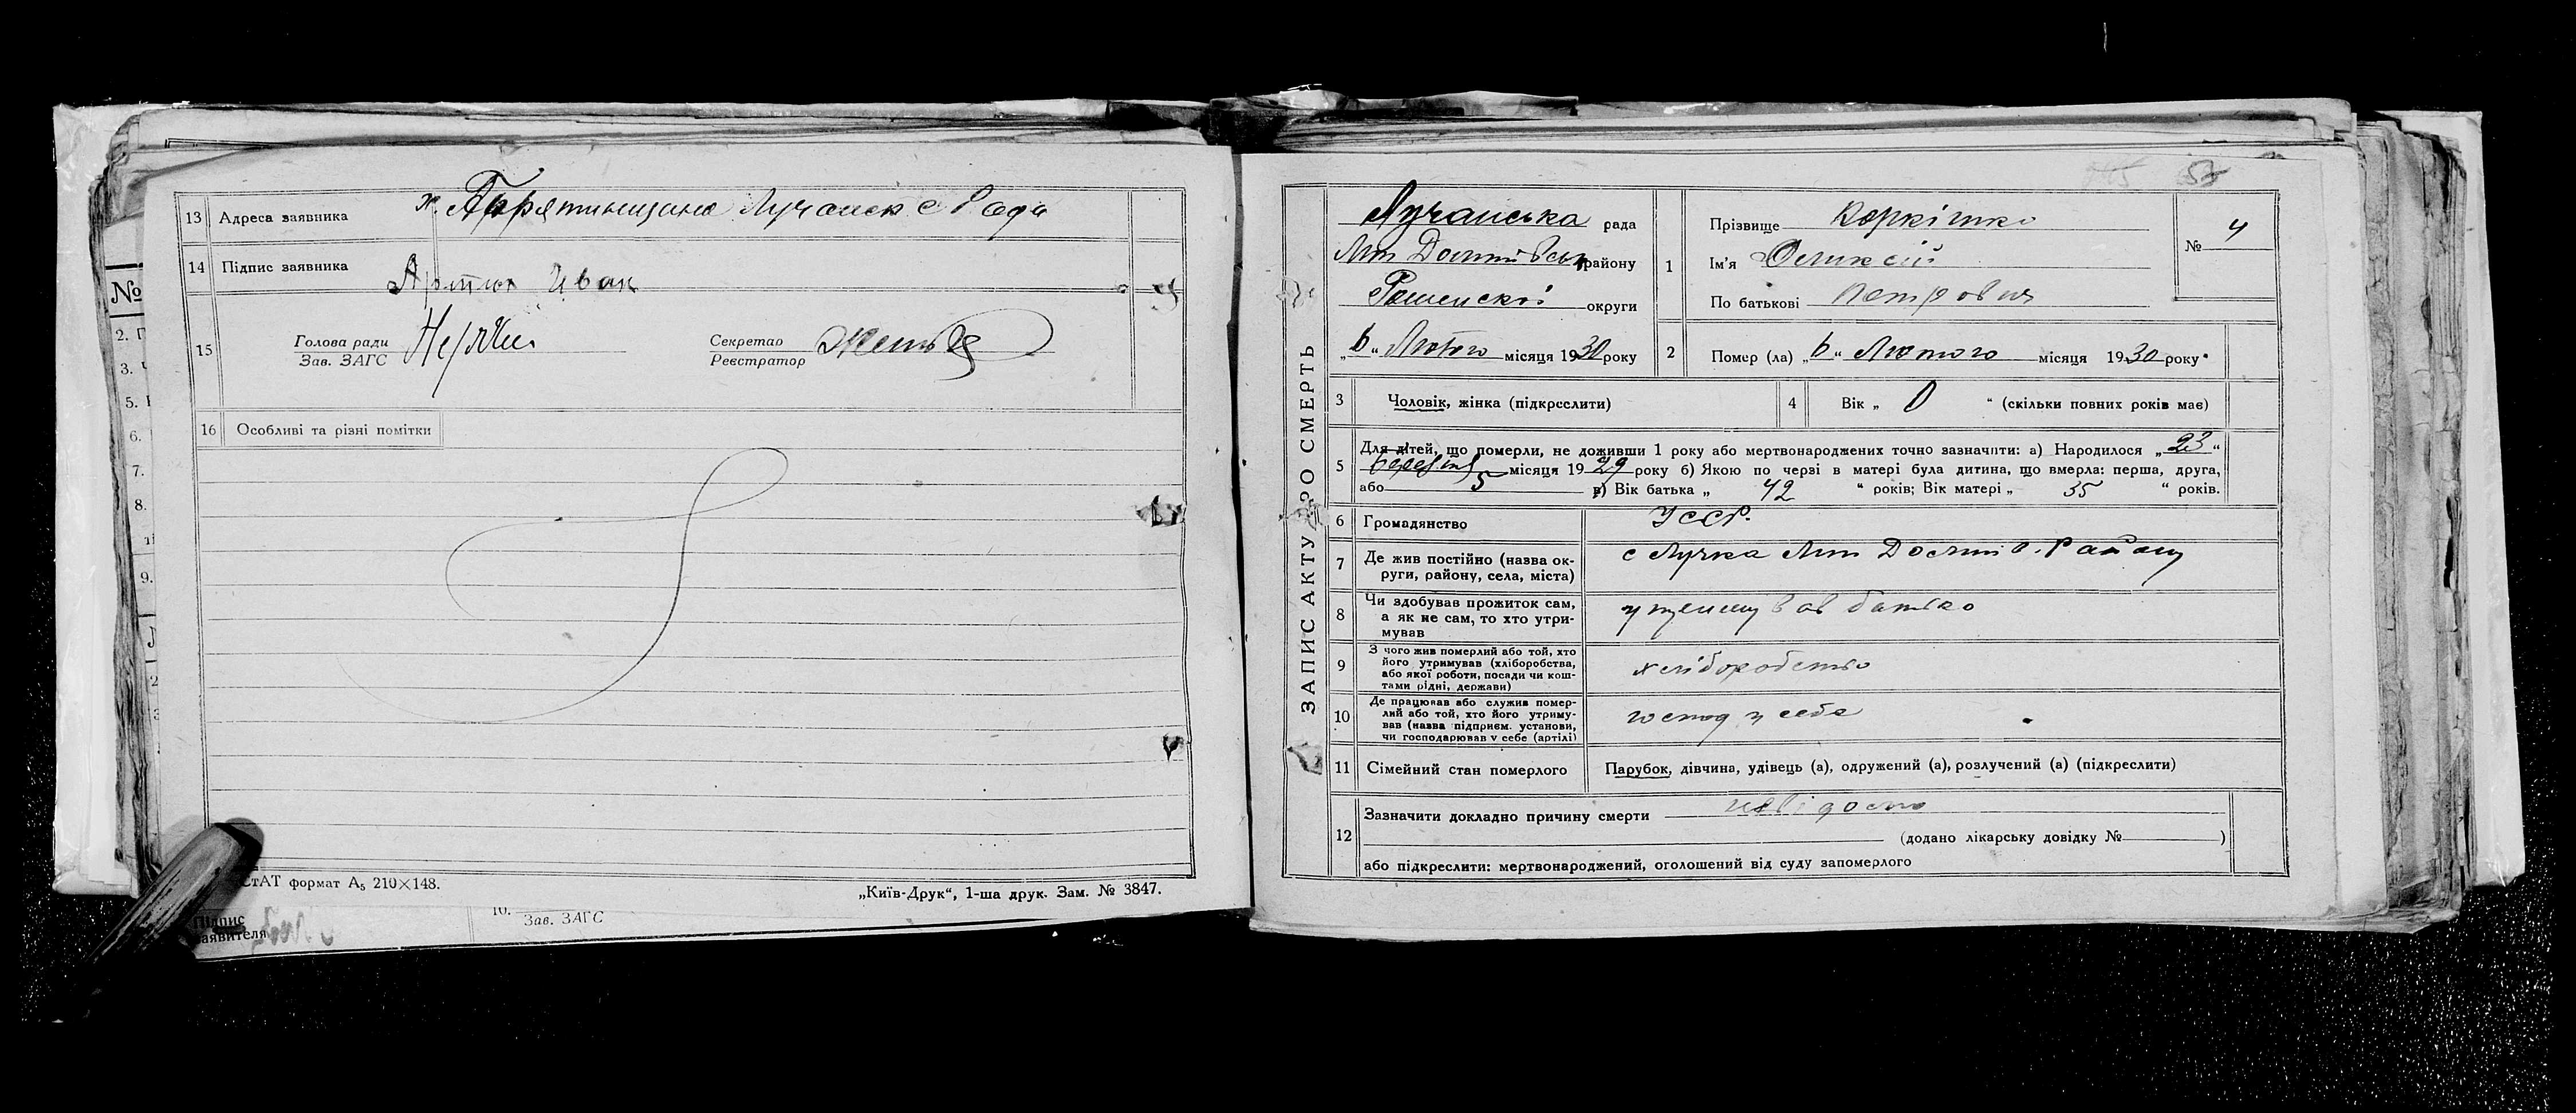 13 Адреса заявника х. Барятинщина Лучанск с Ради
14 Підпис заявника
Иван
15 Голова ради
Зав. ЗАГС
Секретар
Реєстратор
16 Особливі та різні помітки
№
2. Г
3.
5.
6.
7.
8.
9.
СтАТ формат А₅ 210×148.
„Київ-Друк“, 1-ша друк. Зам. № 3847.
Підпис
заявителя
10.
Зав. ЗАГС
ЗАПИС АКТУ ПРО СМЕРТЬ
Лучанська рада
району
округи
„6“ Лютого місяця 1930 року
1 Прізвище Коркішко
Ім'я Олексій
По батькові Петрович
№ 4
2 Помер (ла) „6“ Лютого місяця 1930 року
3 Чоловік, жінка (підкреслити)
4 Вік „ 0 “ (скільки повних років має)
5 Для дітей, що померли, не доживши 1 року або мертвонароджених точно зазначити: а) Народилося „23“
березня місяця 1929 року б) Якою по черзі в матері була дитина, що вмерла: перша, друга,
або 5 в) Вік батька „ 42 “ років; Вік матері „ 35 “ років.
6 Громадянство УССР.
7 Де жив постійно (назва ок-
руги, району, села, міста) с Лучка Району
8 Чи здобував прожиток сам,
а як не сам, то хто утри-
мував батько
9 З чого жив померлий або той, хто
його утримував (хліборобства,
або якої роботи, посади чи кош-
тами рідні, держави) хліборобство
10 Де працював або служив помер-
лий або той, хто його утриму-
вав (назва підприєм. установи,
чи господарював у себе (артілі) господ у себе
11 Сімейний стан померлого Парубок, дівчина, удівець (а), одружений (а), розлучений (а) (підкреслити)
12 Зазначити докладно причину смерти невідомо
(додано лікарську довідку № )
або підкреслити: мертвонароджений, оголошений від суду запомерлого